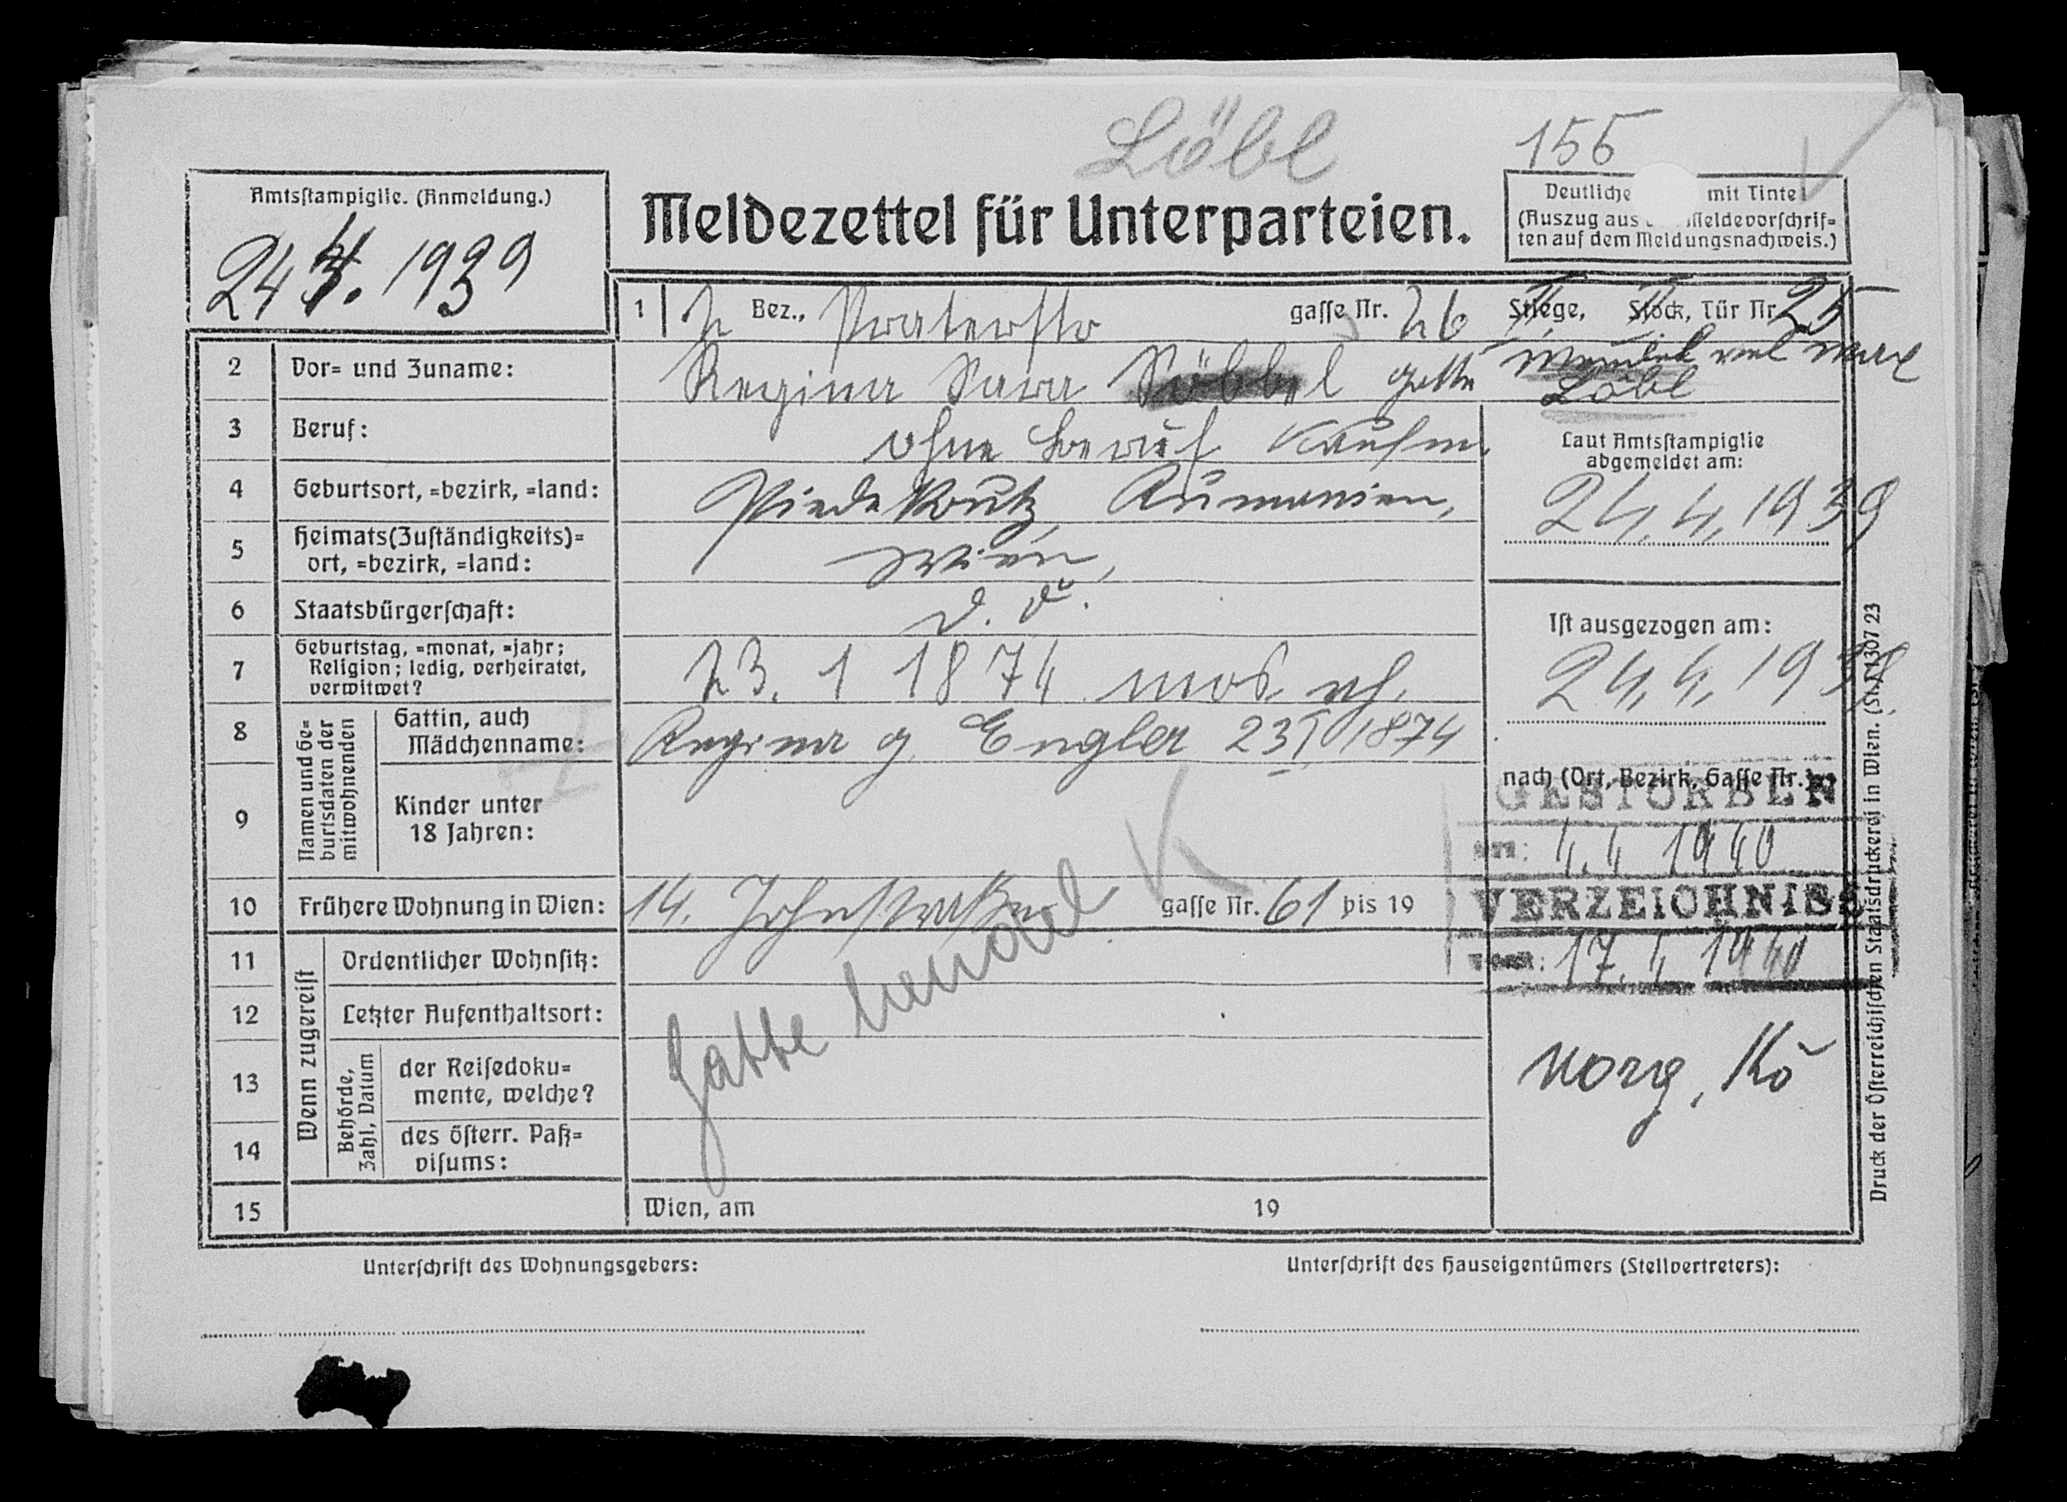 Löbl
155
Amtsstampiglie. (Anmeldung.)
24 4. 1939
Meldezettel für Unterparteien.
Deutliche mit Tinte!
(Auszug aus Meldevorschrif=
ten auf dem Meldungsnachweis.)
1 2 Bez., Praterstr gasse Nr. 26 II Stiege, II Stock, Tür Nr. 25
2 Vor= und Zuname: Regina Sara gatte Mendel vel Max
Löbl
3 Beruf: ohne Beruf Kaufm.
Laut Amtsstampiglie
abgemeldet am:
24. 4. 1939
4 Geburtsort, =bezirk, =land: Rumanien,
5 Heimats(Zuständigkeits)=
ort, =bezirk, =land: Wien,
6 Staatsbürgerschaft:
Ist ausgezogen am:
24. 4. 19
7 Geburtstag, =monat, =jahr;
Religion; ledig, verheiratet,
verwitwet? 23. 1 1874 mos. vh.
Namen und Ge=
burtsdaten der
mitwohnenden
8 Gattin, auch
Mädchenname: Regina g. Engler 23 I 1874
9 Kinder unter
18 Jahren:
nach (Ort, Bezirk, Gasse Nr.)
GESTORBEN
AM: 4. 4 1940
VERZEICHNIS
VOM: 17. 4 1940
10 Frühere Wohnung in Wien: 14. Johnstraße gasse Nr. 61 bis 19
Wenn zugereist
11 Ordentlicher Wohnsitz:
12 Letzter Aufenthaltsort:
Behörde,
Zahl, Datum
13 der Reisedoku=
mente, welche?
14 des österr. Paß=
visums:
Gatte Mendel
15 Wien, am 19
Unterschrift des Wohnungsgebers:
Unterschrift des Hauseigentümers (Stellvertreters):
Druck der Österreichischen Staatsdruckerei in Wien. (St. 1307 23